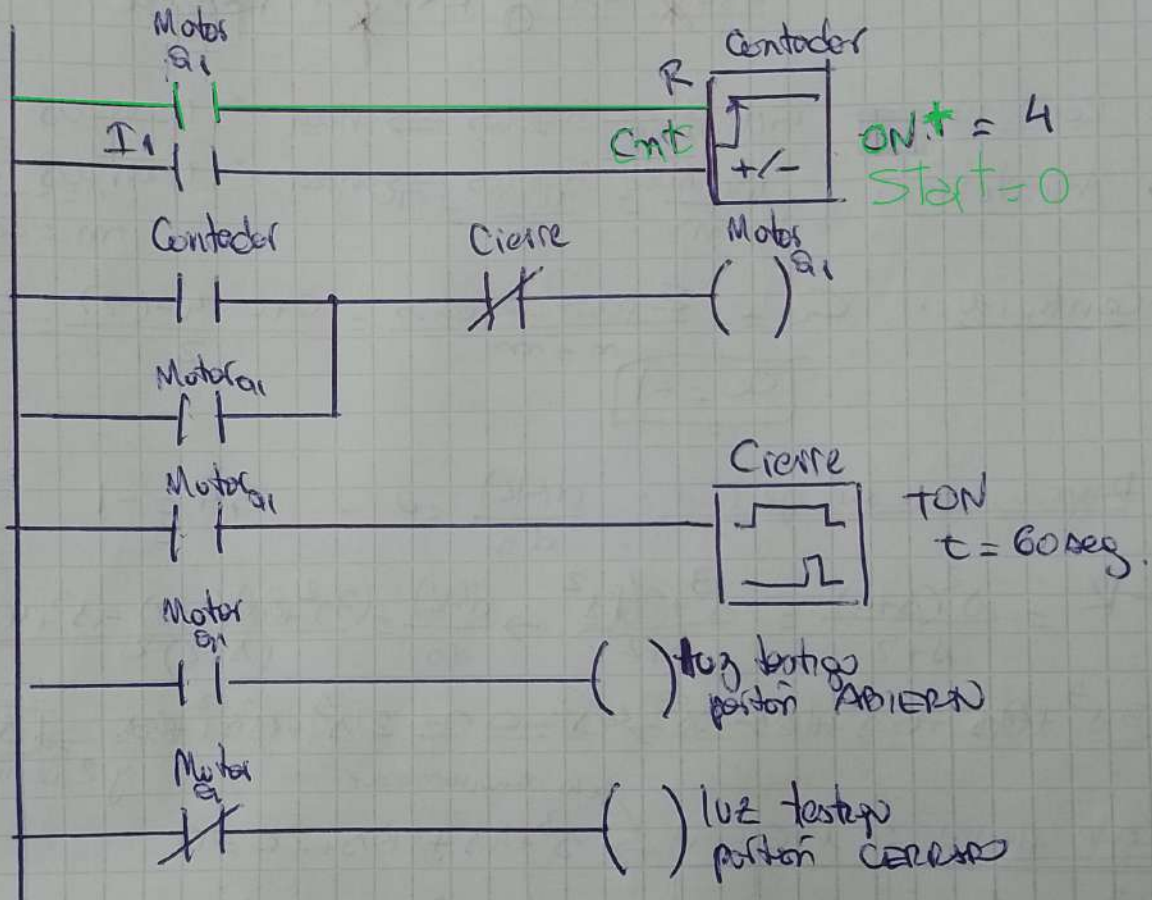 Motor
Q1
Contador
R
I1
Cnt
+/-
ON.* = 4
Start = 0
Contador
Cierre
Motor
Q1
Motor Q1
Motor Q1
Cierre
TON
t = 60 seg.
Motor
Q1
luz testigo
portón ABIERN
Motor
Q
luz testigo
portón CERRADO